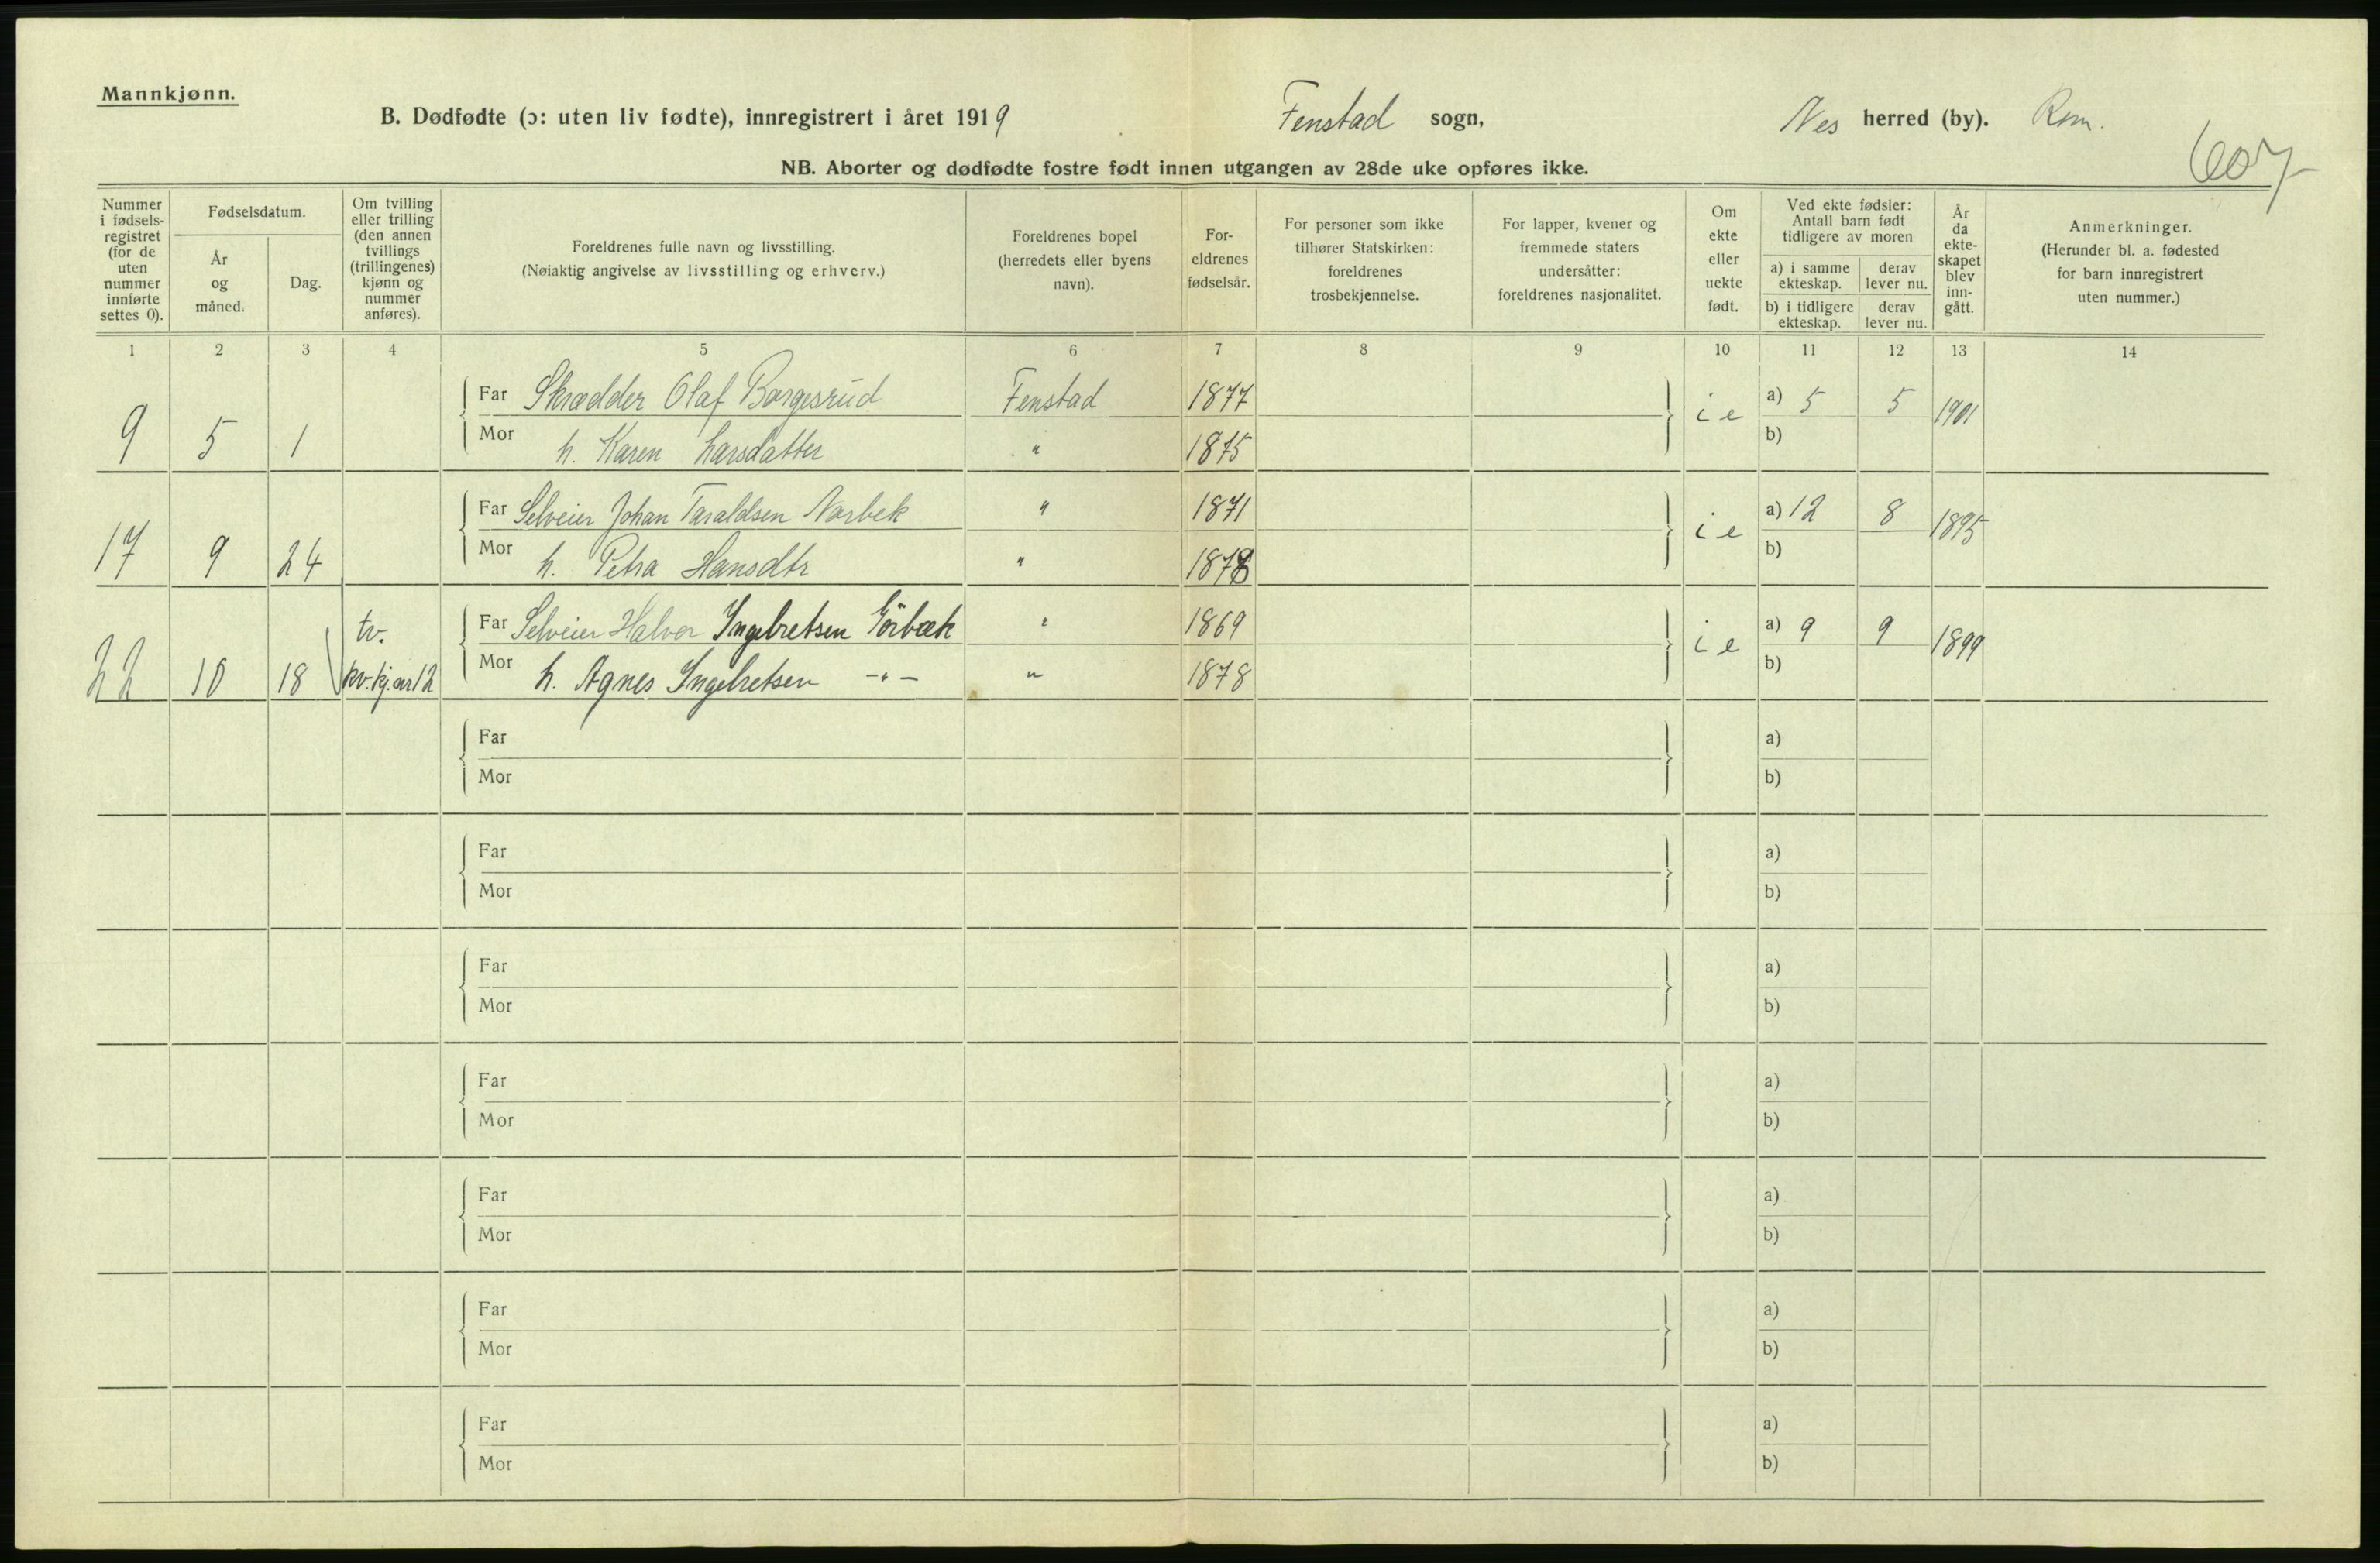 Mannkjønn.
B. Dødfødte (ɔ: uten liv fødte), innregistrert i året 1919 Fenstad sogn, Nes herred (by). Rom.
607
NB. Aborter og dødfødte fostre født innen utgangen av 28de uke opføres ikke.
Nummer i fødsels-registret (for de uten nummer innførte settes 0).
Fødselsdatum.
År og måned.
Dag.
Om tvilling eller trilling (den annen tvillings (trillingenes) kjønn og nummer anføres).
Foreldrenes fulle navn og livsstilling.
(Nøiaktig angivelse av livsstilling og erhverv.)
Foreldrenes bopel (herredets eller byens navn).
For-eldrenes fødselsår.
For personer som ikke tilhører Statskirken: foreldrenes trosbekjennelse.
For lapper, kvener og fremmede staters undersåtter: foreldrenes nasjonalitet.
Om ekte eller uekte født.
Ved ekte fødsler: Antall barn født tidligere av moren
a) i samme ekteskap.
derav lever nu.
b) i tidligere ekteskap.
derav lever nu.
År da ekte-skapet blev inn-gått.
Anmerkninger.
(Herunder bl. a. fødested for barn innregistrert uten nummer.)
1 2 3 4 5 6 7 8 9 10 11 12 13 14
Far Skrædder Olaf Borgesrud Fenstad 1877 a) 5 5 1901
9 5 1 i e
Mor h. Karen Larsdatter " 1875 b)
Far Selveier Johan Taraldsen Narbek " 1871 a) 12 8 1895
17 9 24 i e
Mor h. Petra Hansdtr " 1878 b)
tv. Far Selveier Halvor Ingebretsen " 1869 a) 9 9 1899
22 10 18 kv.kj. nr 12 i e
Mor h. Agnes Ingebretsen -"- " 1878 b)
Far a)
Mor b)
Far a)
Mor b)
Far a)
Mor b)
Far a)
Mor b)
Far a)
Mor b)
Far a)
Mor b)
Far a)
Mor b)